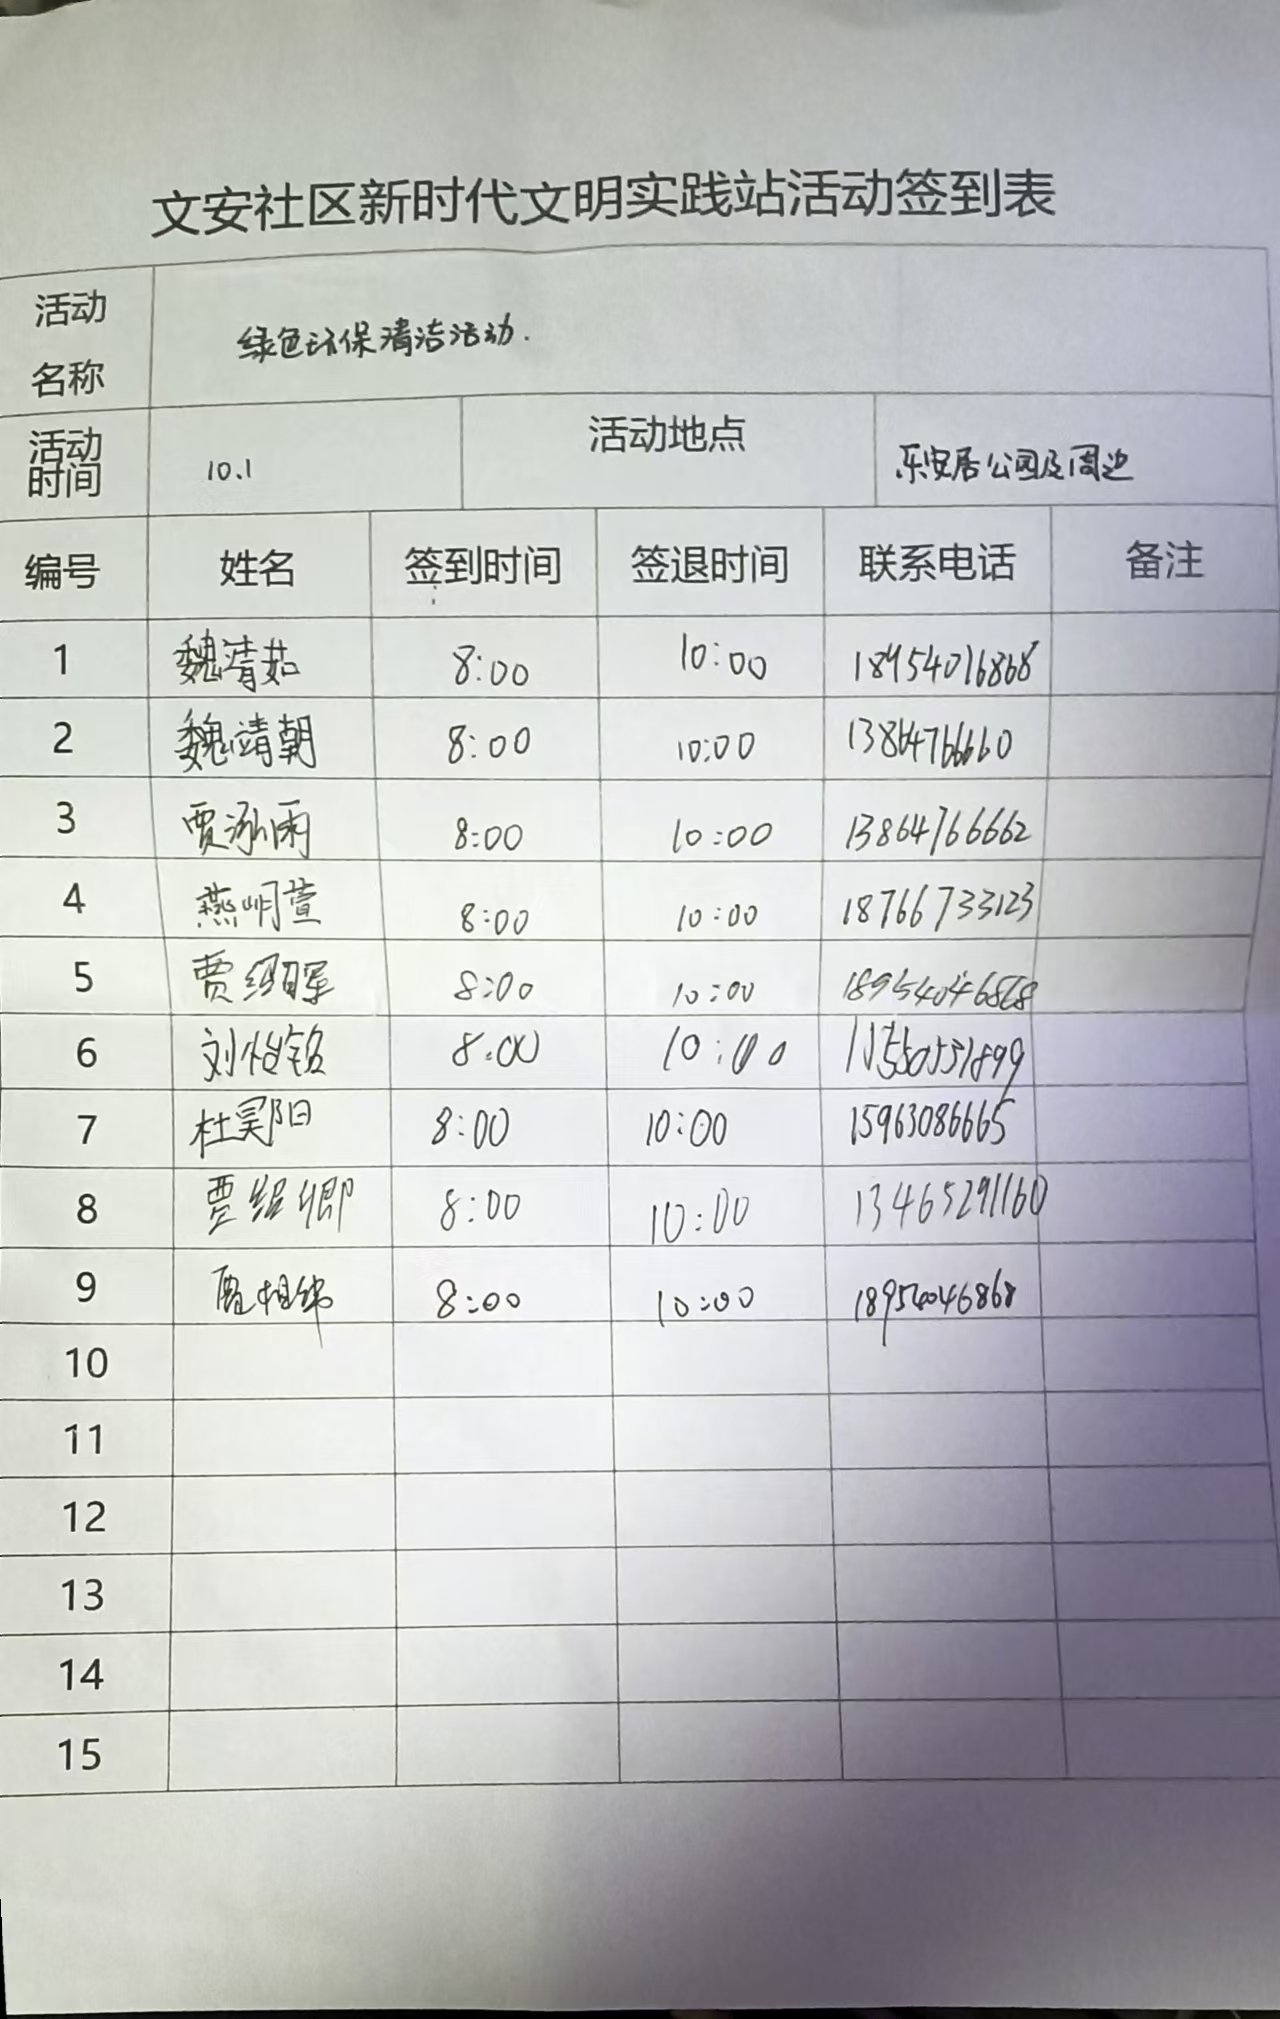 文安社区新时代文明实践站活动签到表
活动名称 绿色环保清洁活动.
活动时间 10.1 活动地点 乐安居公园及周边
编号 姓名 签到时间 签退时间 联系电话 备注
1 魏清茹 8:00 10:00 18954016868
2 魏靖朝 8:00 10:00 13864766660
3 贾泓雨 8:00 10:00 13864766662
4 燕明萱 8:00 10:00 18766733123
5 贾绍晖 8:00 10:00 18954046868
6 刘怡铭 8:00 10:00
7 杜昊阳 8:00 10:00 15963086665
8 贾绍卿 8:00 10:00 13465291160
9 8:00 10:00 18954046868
10
11
12
13
14
15